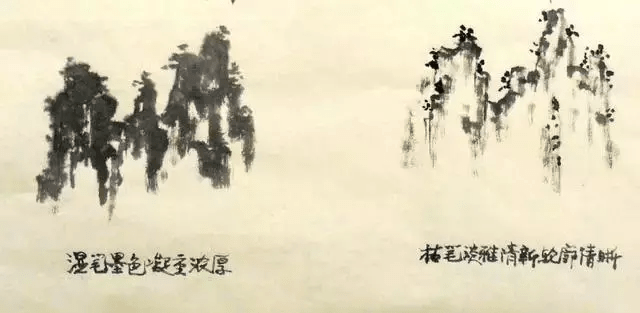 湿笔墨色凝重浓厚
枯笔淡雅清新轮廓清晰